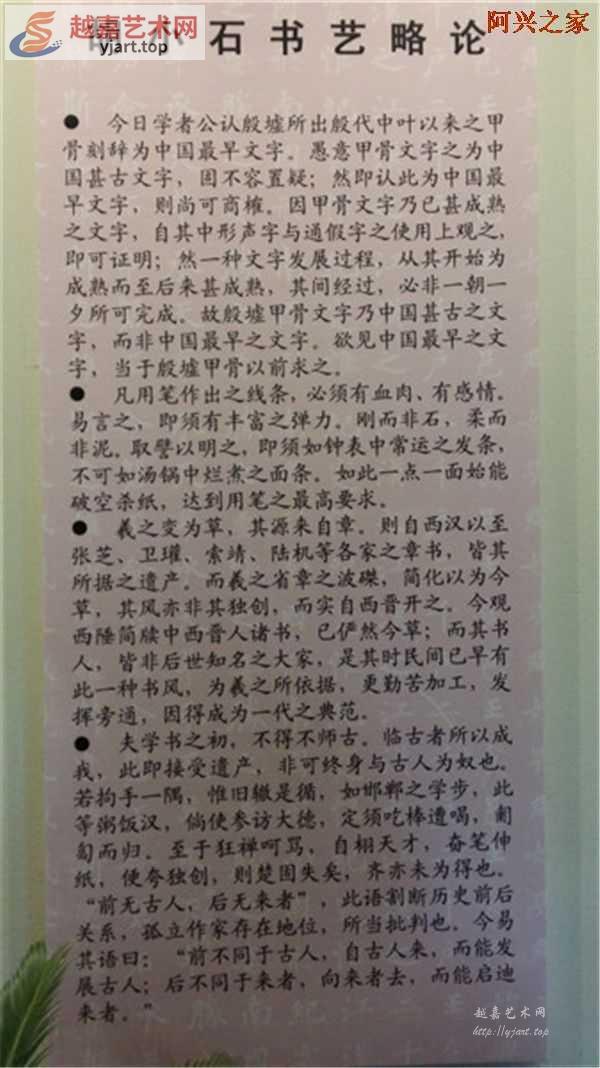 越嘉艺术网
yjart.top
阿兴之家
小石书艺略论
● 今日学者公认殷墟所出殷代中叶以来之甲
骨刻辞为中国最早文字。愚意甲骨文字之为中
国甚古文字，固不容置疑；然即认此为中国最
早文字，则尚可商榷。因甲骨文字乃已甚成熟
之文字，自其中形声字与通假字之使用上观之，
即可证明；然一种文字发展过程，从其开始为
成熟而至后来甚成熟，其间经过，必非一朝一
夕所可完成。故殷墟甲骨文字乃中国甚古之文
字，而非中国最早之文字。欲见中国最早之文
字，当于殷墟甲骨以前求之。
● 凡用笔作出之线条，必须有血肉、有感情。
易言之，即须有丰富之弹力。刚而非石，柔而
非泥。取譬以明之，即须如钟表中常运之发条，
不可如汤锅中烂煮之面条。如此一点一面始能
破空杀纸，达到用笔之最高要求。
● 羲之变为草，其源来自章。则自西汉以至
张芝、卫瓘、索靖、陆机等各家之章书，皆其
所据之遗产。而羲之省章之波磔，简化以为今
草，其风亦非其独创，而实自西晋开之。今观
西陲简牍中西晋人诸书，已俨然今草；而其书
人，皆非后世知名之大家，是其时民间已早有
此一种书风，为羲之所依据，更勤苦加工，发
挥旁通，因得成为一代之典范。
● 夫学书之初，不得不师古。临古者所以成
我，此即接受遗产，非可终身与古人为奴也。
若拘手一隅，惟旧辙是循，如邯郸之学步，此
等粥饭汉，倘使参访大德，定须吃棒遭喝，匍
匐而归。至于狂禅呵骂，自栩天才，奋笔伸
纸，便夸独创，则楚固失矣，齐亦未为得也。
“前无古人，后无来者”，此语割断历史前后
关系，孤立作家存在地位，所当批判也。今易
其语曰：“前不同于古人，自古人来，而能发
展古人；后不同于来者，向来者去，而能启迪
来者。”
越嘉艺术网
http://yjart.top